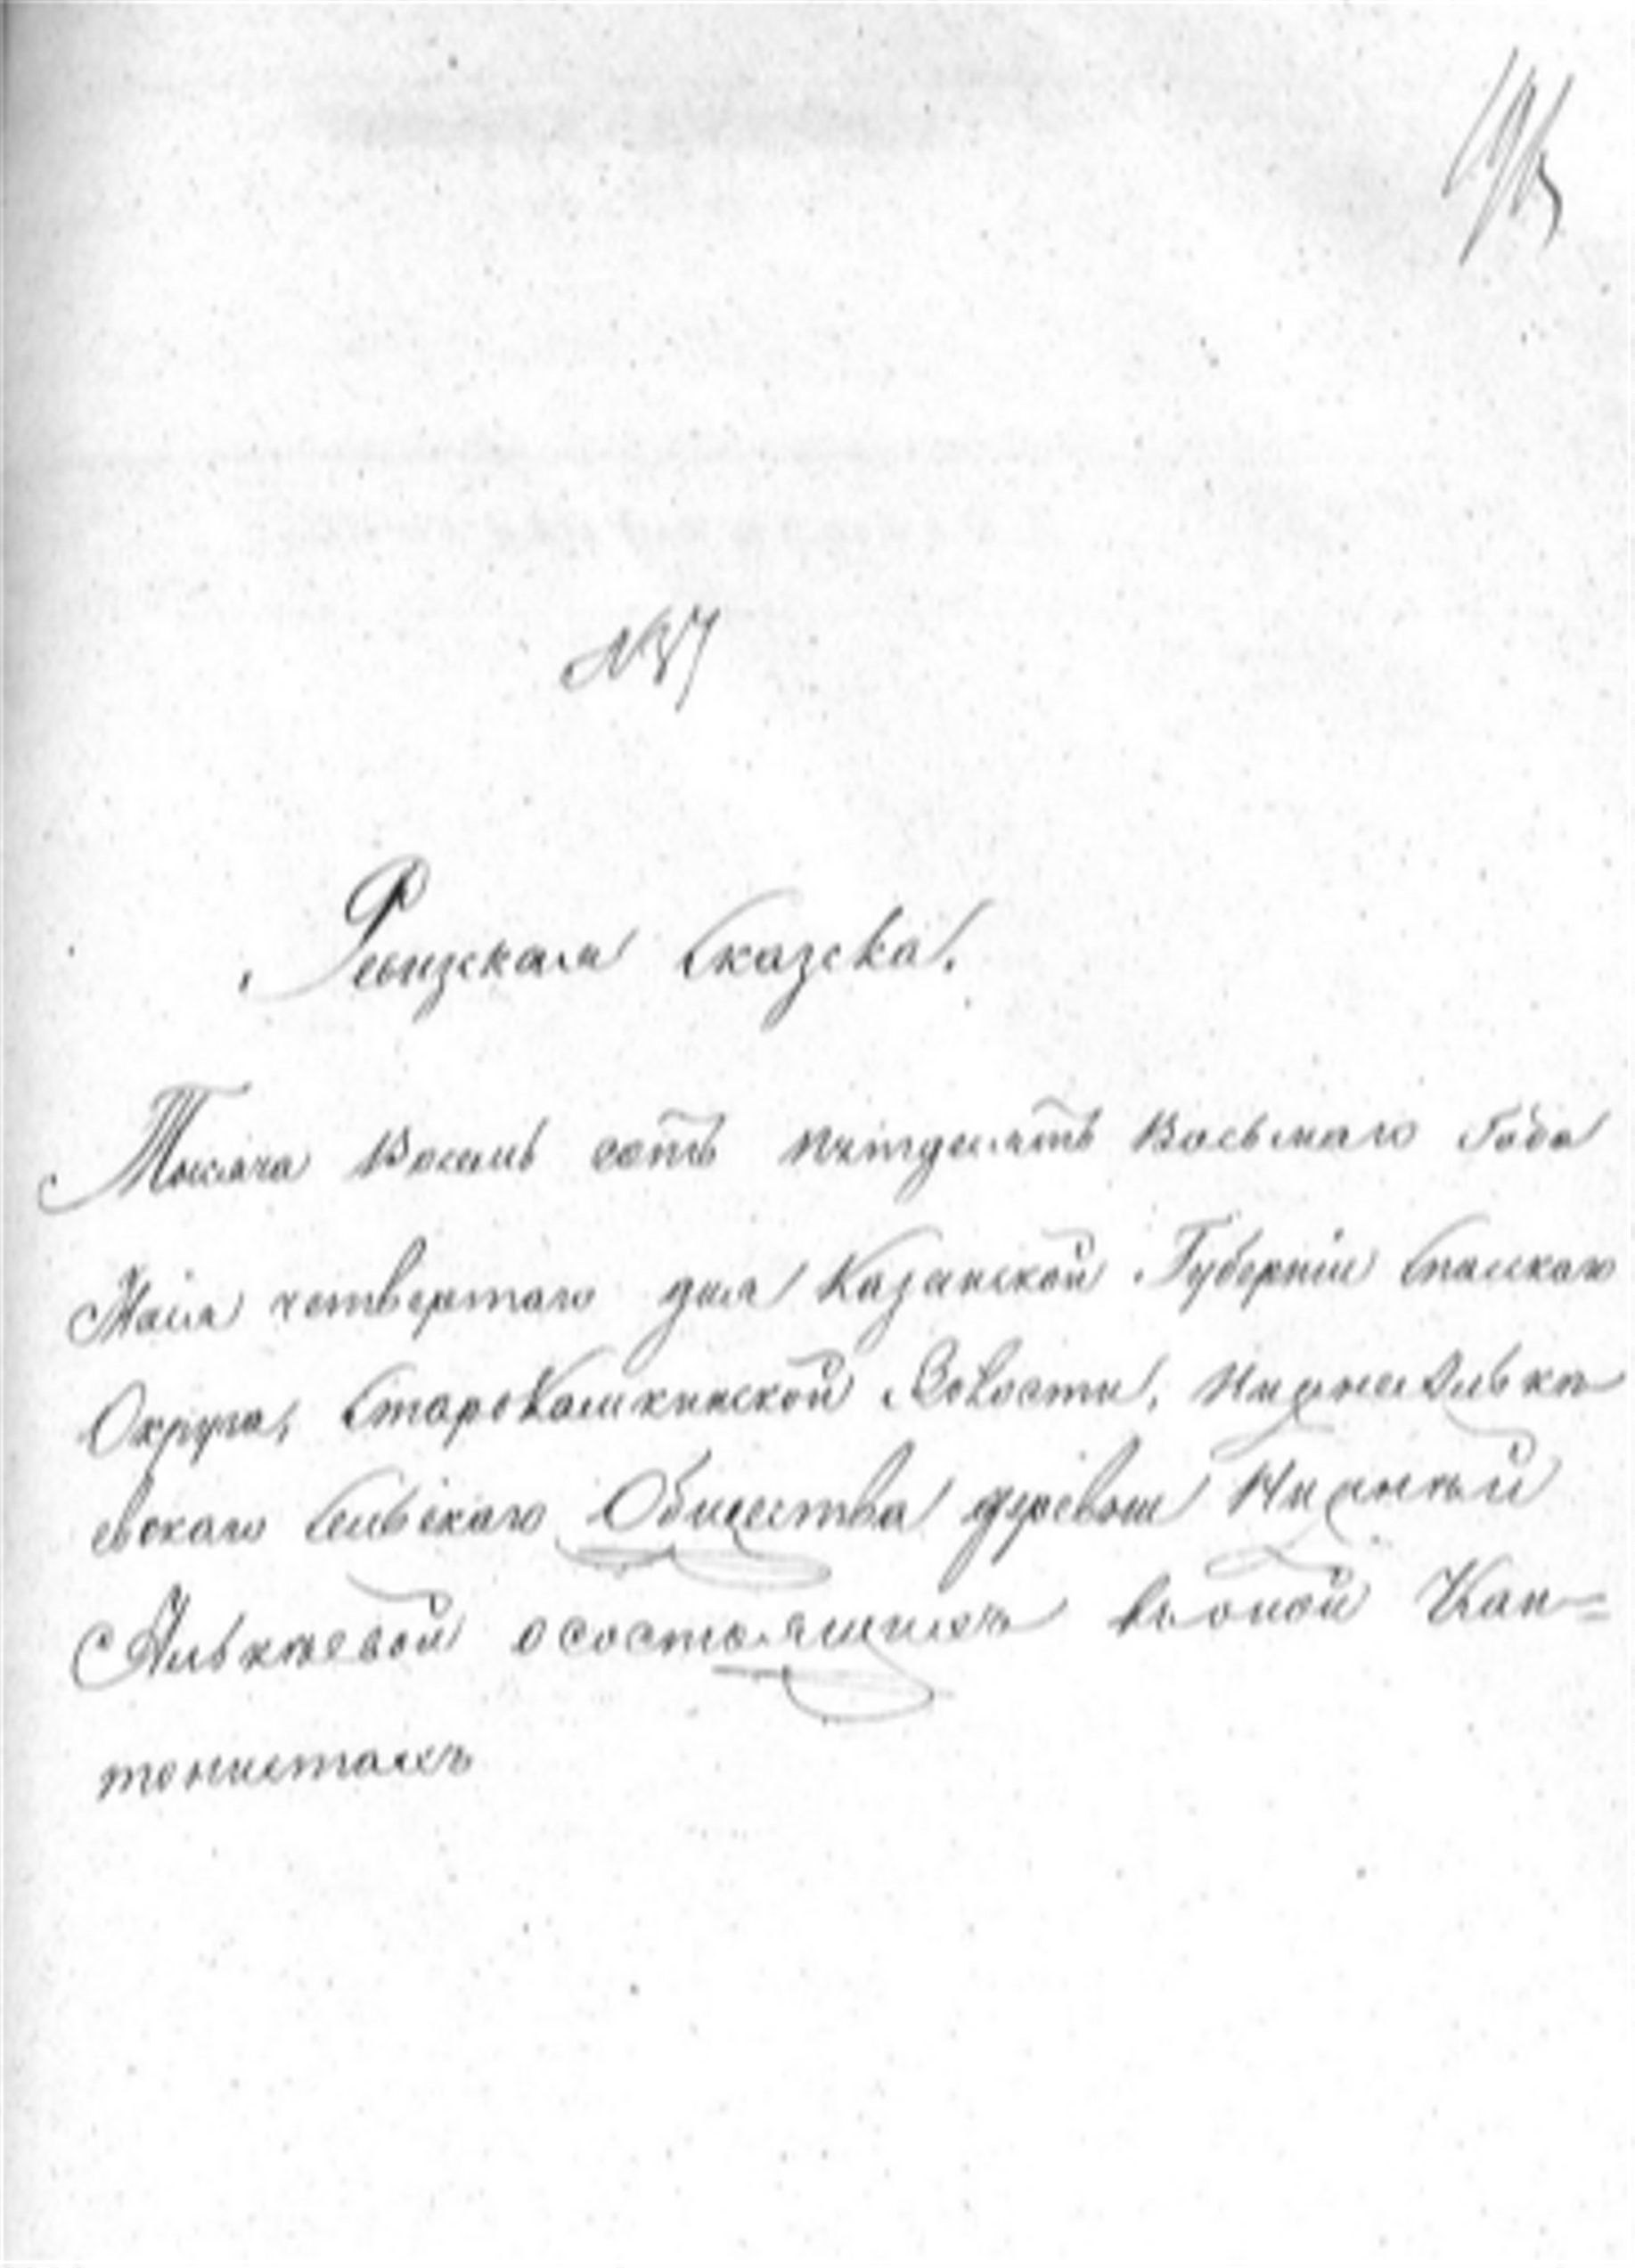 № 87
Ревизская сказка.
Тысяча восемь сотъ пятдесятъ восьмаго года
Маія четвертаго дня Казанской Губерніи Спасскаго
Округа, Старокамкинской Волости, Нижнеальке-
евскаго сельскаго Общества деревни Нижней
Алькѣевой о состоящихъ въ оной Кан=
тонистахъ